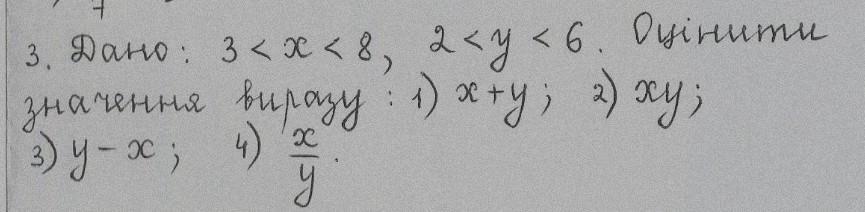 3. Дано: 3 < x < 8, 2 < y < 6. Оцінити
значення виразу: 1) x+y; 2) xy;
3) y - x; 4) x/y.